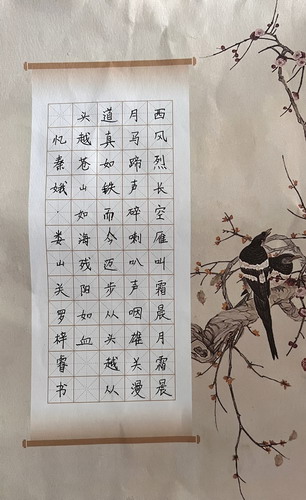 西风烈长空雁叫霜晨月霜晨
月马蹄声碎喇叭声咽雄关漫
道真如铁而今迈步从头越从
头越苍山如海残阳如血
忆秦娥·娄山关罗梓睿书